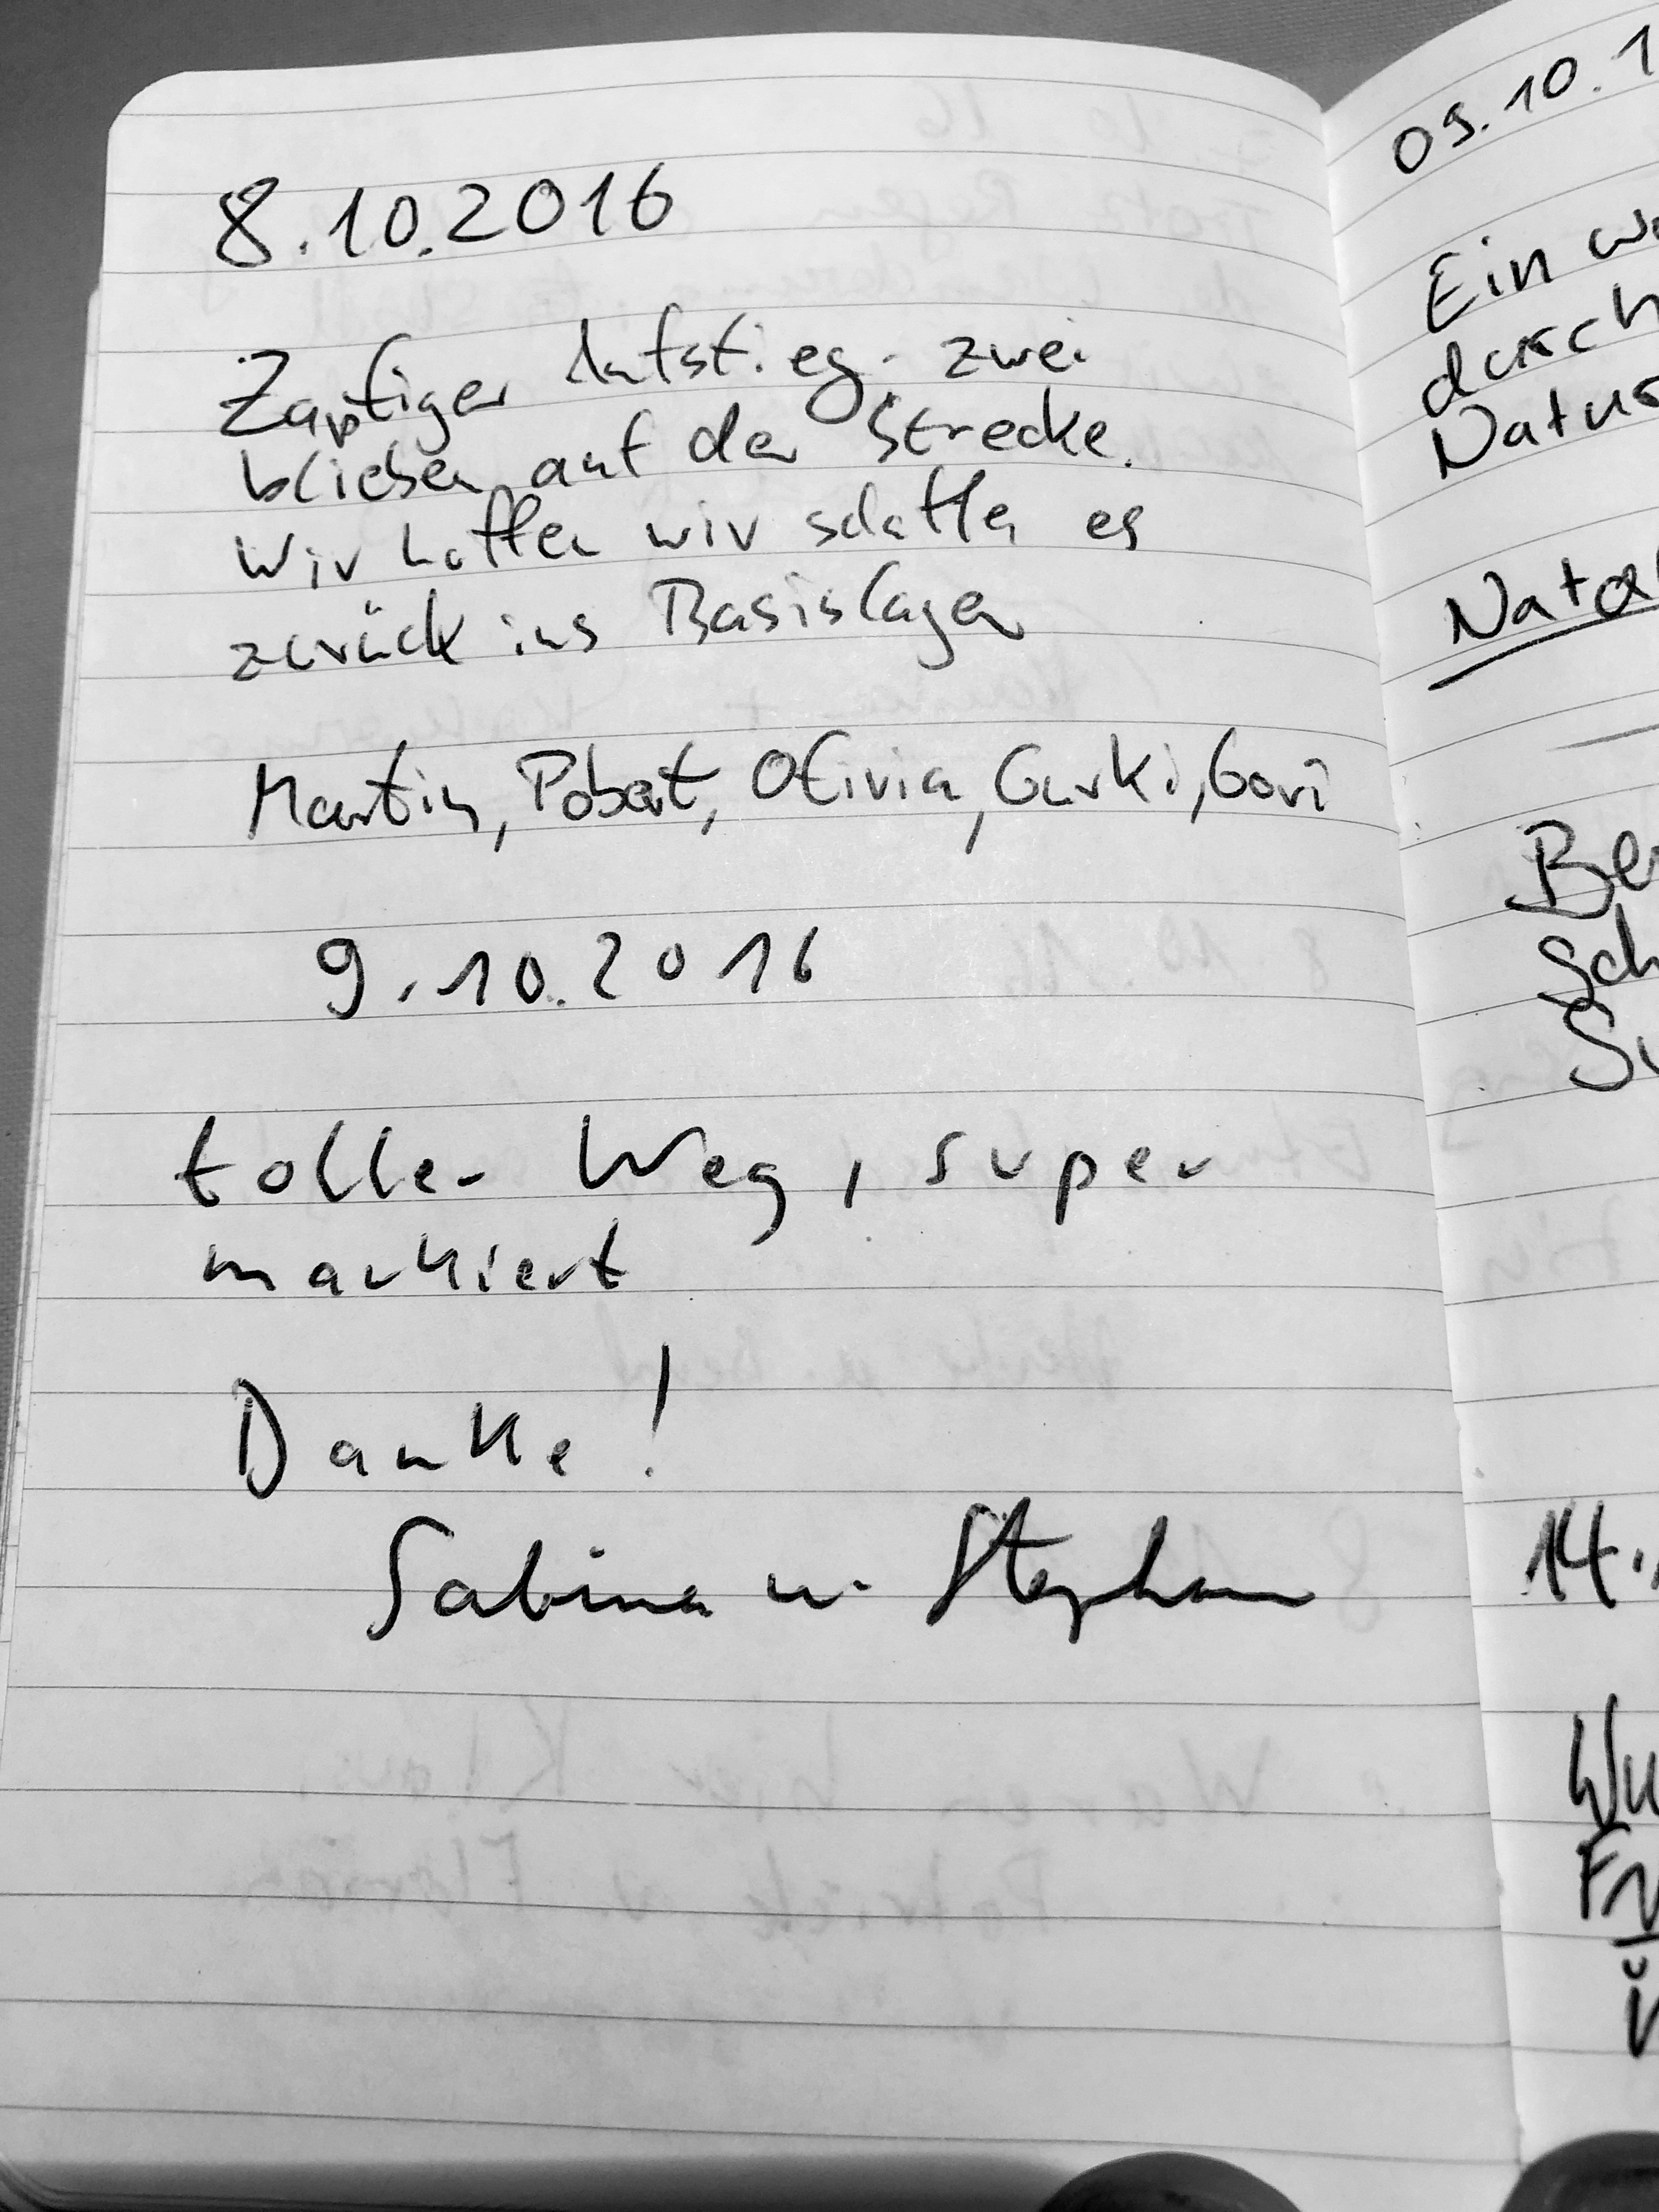 8.10.2016
Zapfiger Aufstieg. zwei
blieben auf der Strecke.
Wir hoffen wir schaffen es
zurück ins Basislager
Martin, Robert, Olivia, Gurki, Gori
9.10.2016
toller Weg, super
markiert
Danke!
Sabina u. Stephan
09.10.1
Ein w
durch
Natur
Be
Sch
14.